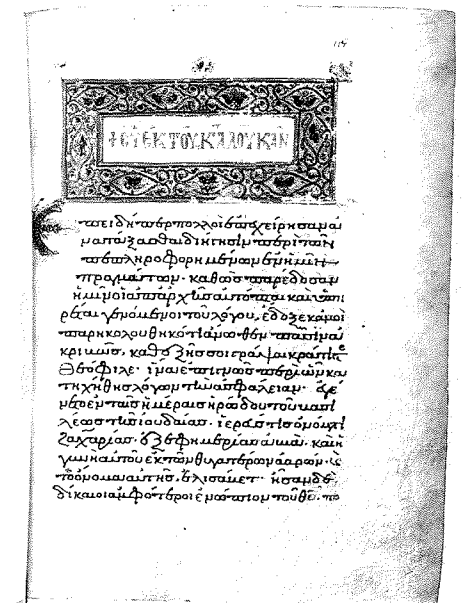 114
+ ΕΥ ΕΚ ΤΟΥ ΚΑΤΑ ΛΟΥΚΑΝ
Επειδήπερ πολλοὶ ἐπεχείρησαν ἀ
νατάξασθαι διήγησιν περὶ τῶν
πεπληροφορημένων ἐν ἡμῖν
πραγμάτων. καθὼς παρέδοσαν
ἡμῖν οἱ ἀπαρχῆς αὐτόπται καὶ ὑπη
ρέται γενόμενοι τοῦ λόγου, ἔδοξε κἀμοὶ
παρηκολουθηκότι ἄνωθεν πᾶσιν ἀ
κριβῶς, καθεξῆς σοι γράψαι κράτιστε
Θεόφιλε. ἵνα ἐπιγνῶς περὶ ὧν κα
τηχήθης λόγων τὴν ἀσφάλειαν. ἐγέ
νετο ἐν ταῖς ἡμέραις ἡρώδου τοῦ βασι
λέως τῆς ἰουδαίας. ἱερεύς τις ὀνόματι
Ζαχαρίας. ἐξ ἐφημερίας ἀβιά. καὶ ἡ
γυνὴ αὐτοῦ ἐκ τῶν θυγατέρων ἀαρών. καὶ
τὸ ὄνομα αὐτῆς, ἐλισάβετ. ἦσαν δὲ
δίκαιοι ἀμφότεροι ἐνώπιον τοῦ θυ. πο